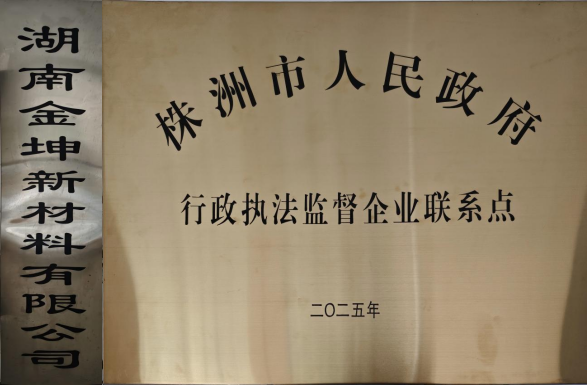 湖南金坤新材料有限公司
株洲市人民政府
行政执法监督企业联系点
二〇二五年